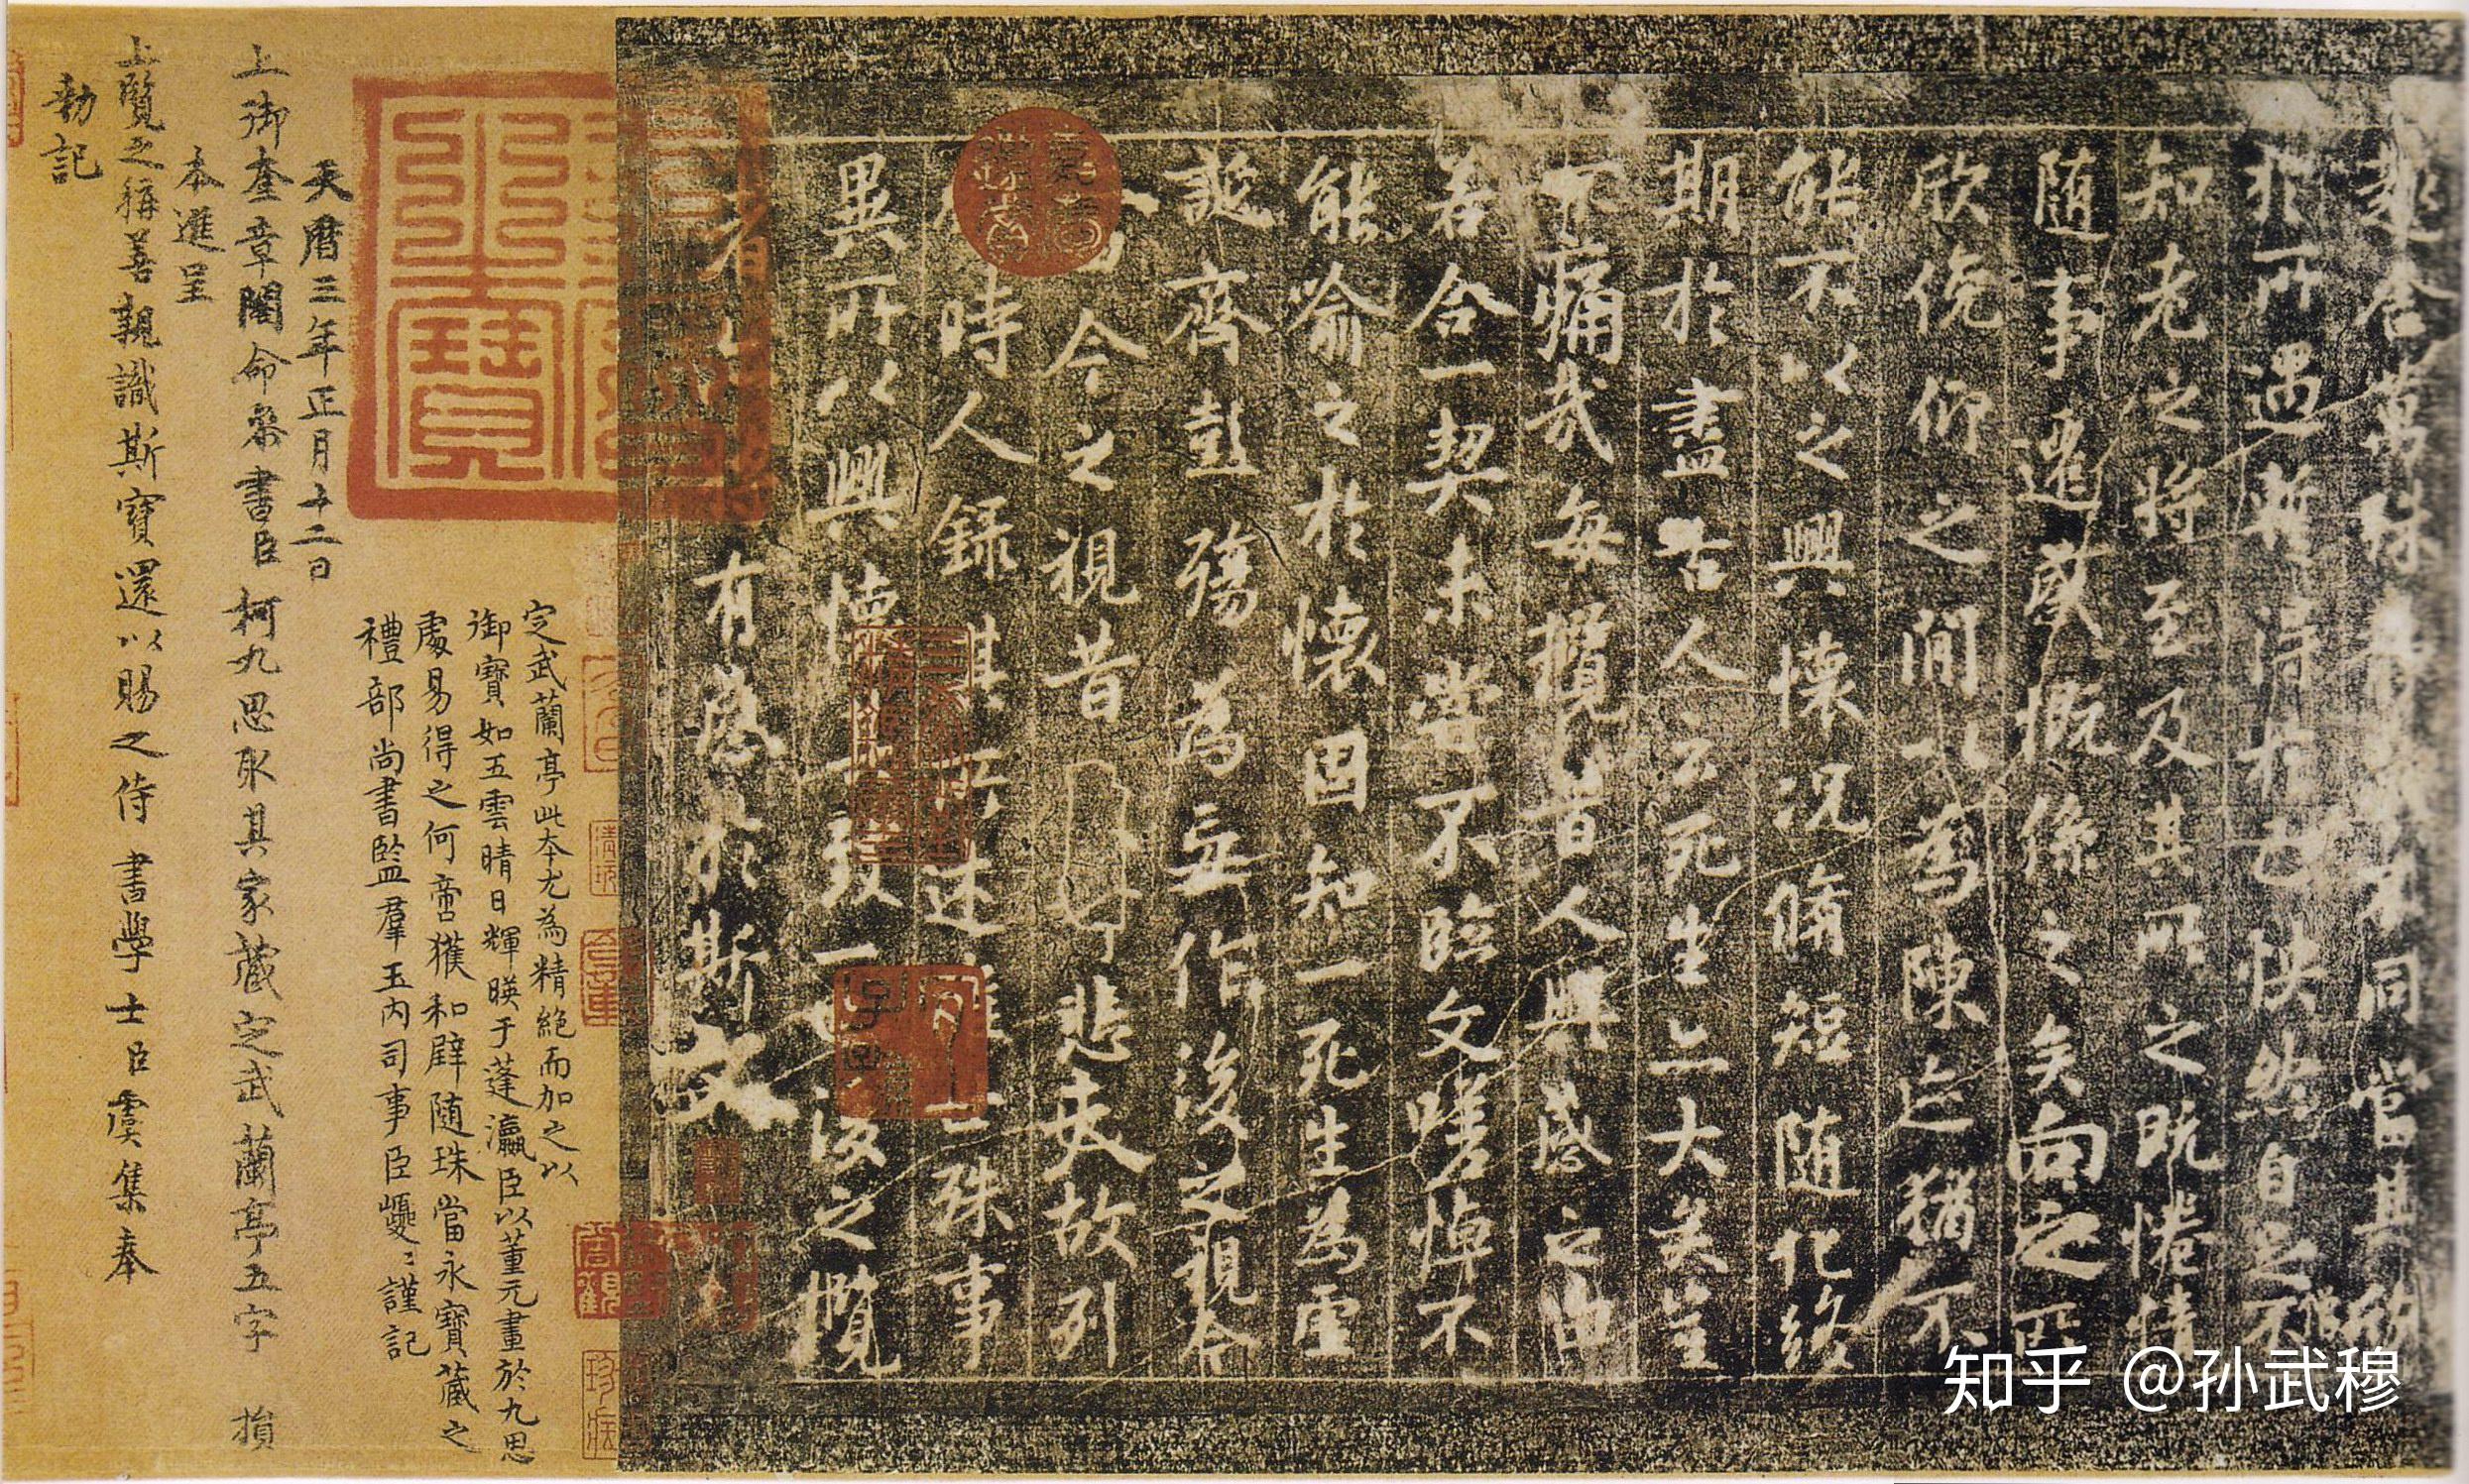 趣舍萬殊靜躁不同當其欣
於所遇暫得於己怏然自足不
知老之將至及其所之既惓情
随事遷感慨係之矣向之所
欣俛仰之間以為陳迹猶不
能不以之興懷況脩短随化終
期於盡古人云死生亦大矣豈
不痛哉每攬昔人興感之由
若合一契未嘗不臨文嗟悼不
能喻之於懷固知一死生為虛
誕齊彭殤為妄作後之視今
今之視昔悲夫故列
時人錄其所述雖世殊事
異所以興懷其致一也後之攬
者有感於斯文
定武蘭亭此本尤為精絕而加之以
御寶如五雲晴日輝暎于蓬瀛臣以董元畫於九思
處易得之何啻獲和璧随珠當永寶藏之
禮部尚書監羣玉內司事臣巙〻謹記
天曆三年正月十二日
上御奎章閣命參書臣柯九思取其家藏定武蘭亭五字損
本進呈
上覽之稱善親識斯寶還以賜之侍書學士臣虞集奉
勅記
知乎 @孙武穆